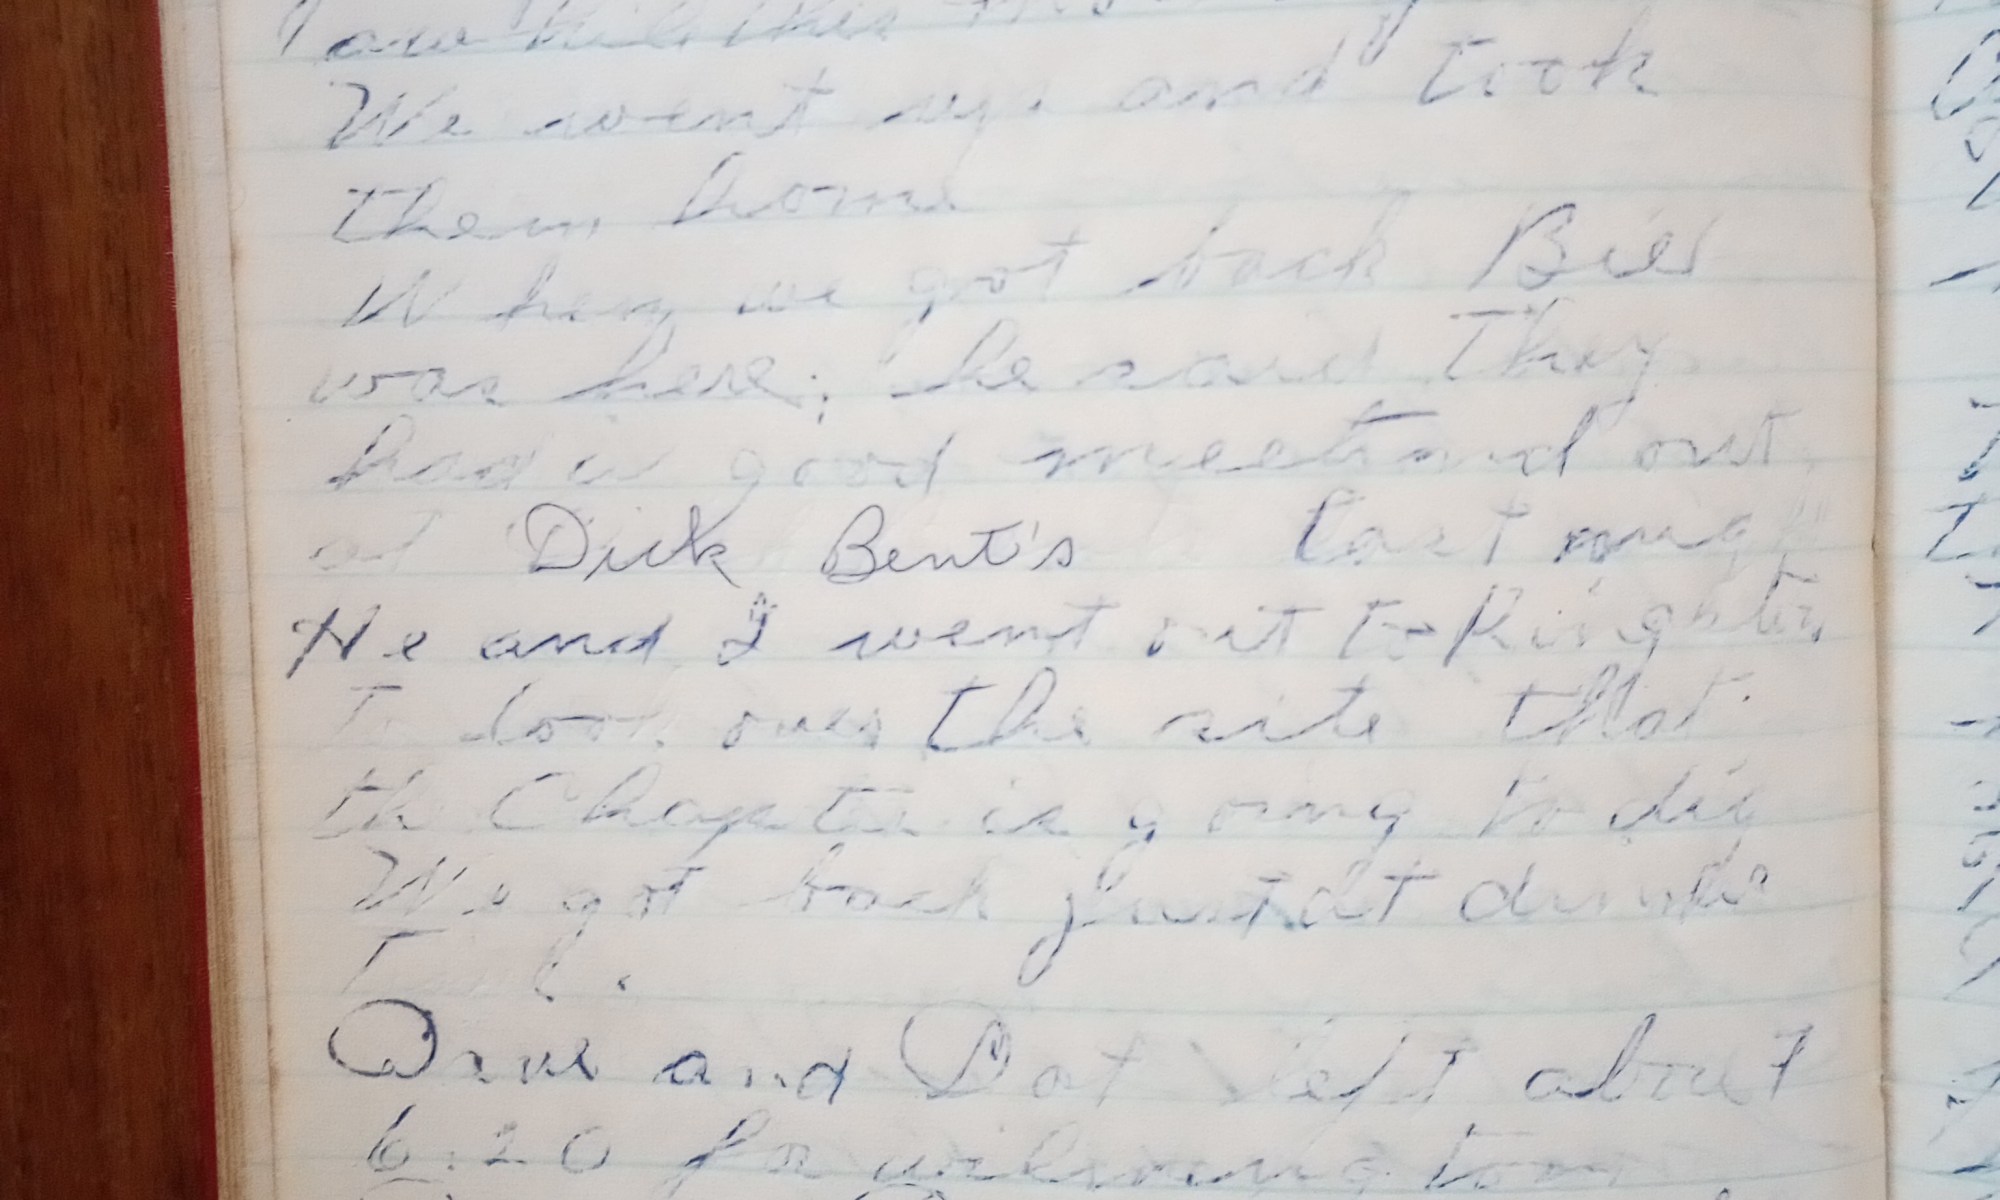 We went up and took
them home
When we got back Bill
was here; he said They
had a good meeting out
at Dick Bent's last night
He and I went out to
To look over the site that
the Chapter is going to dig
We got back just at
Time.
Dave and Dot left about
6:20 for wilmington